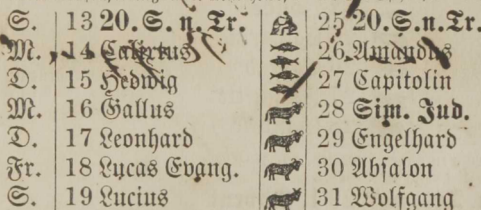 S. 13 20. S. n. Tr. 25 20. S. n. Tr.
M. 14 Calixtus 26 Amandus
D. 15 Hedwig 27 Capitolin
M. 16 Gallus 28 Sim. Jud.
D. 17 Leonhard 29 Engelhard
Fr. 18 Lucas Evang. 30 Absalon
S. 19 Lucius 31 Wolfgang